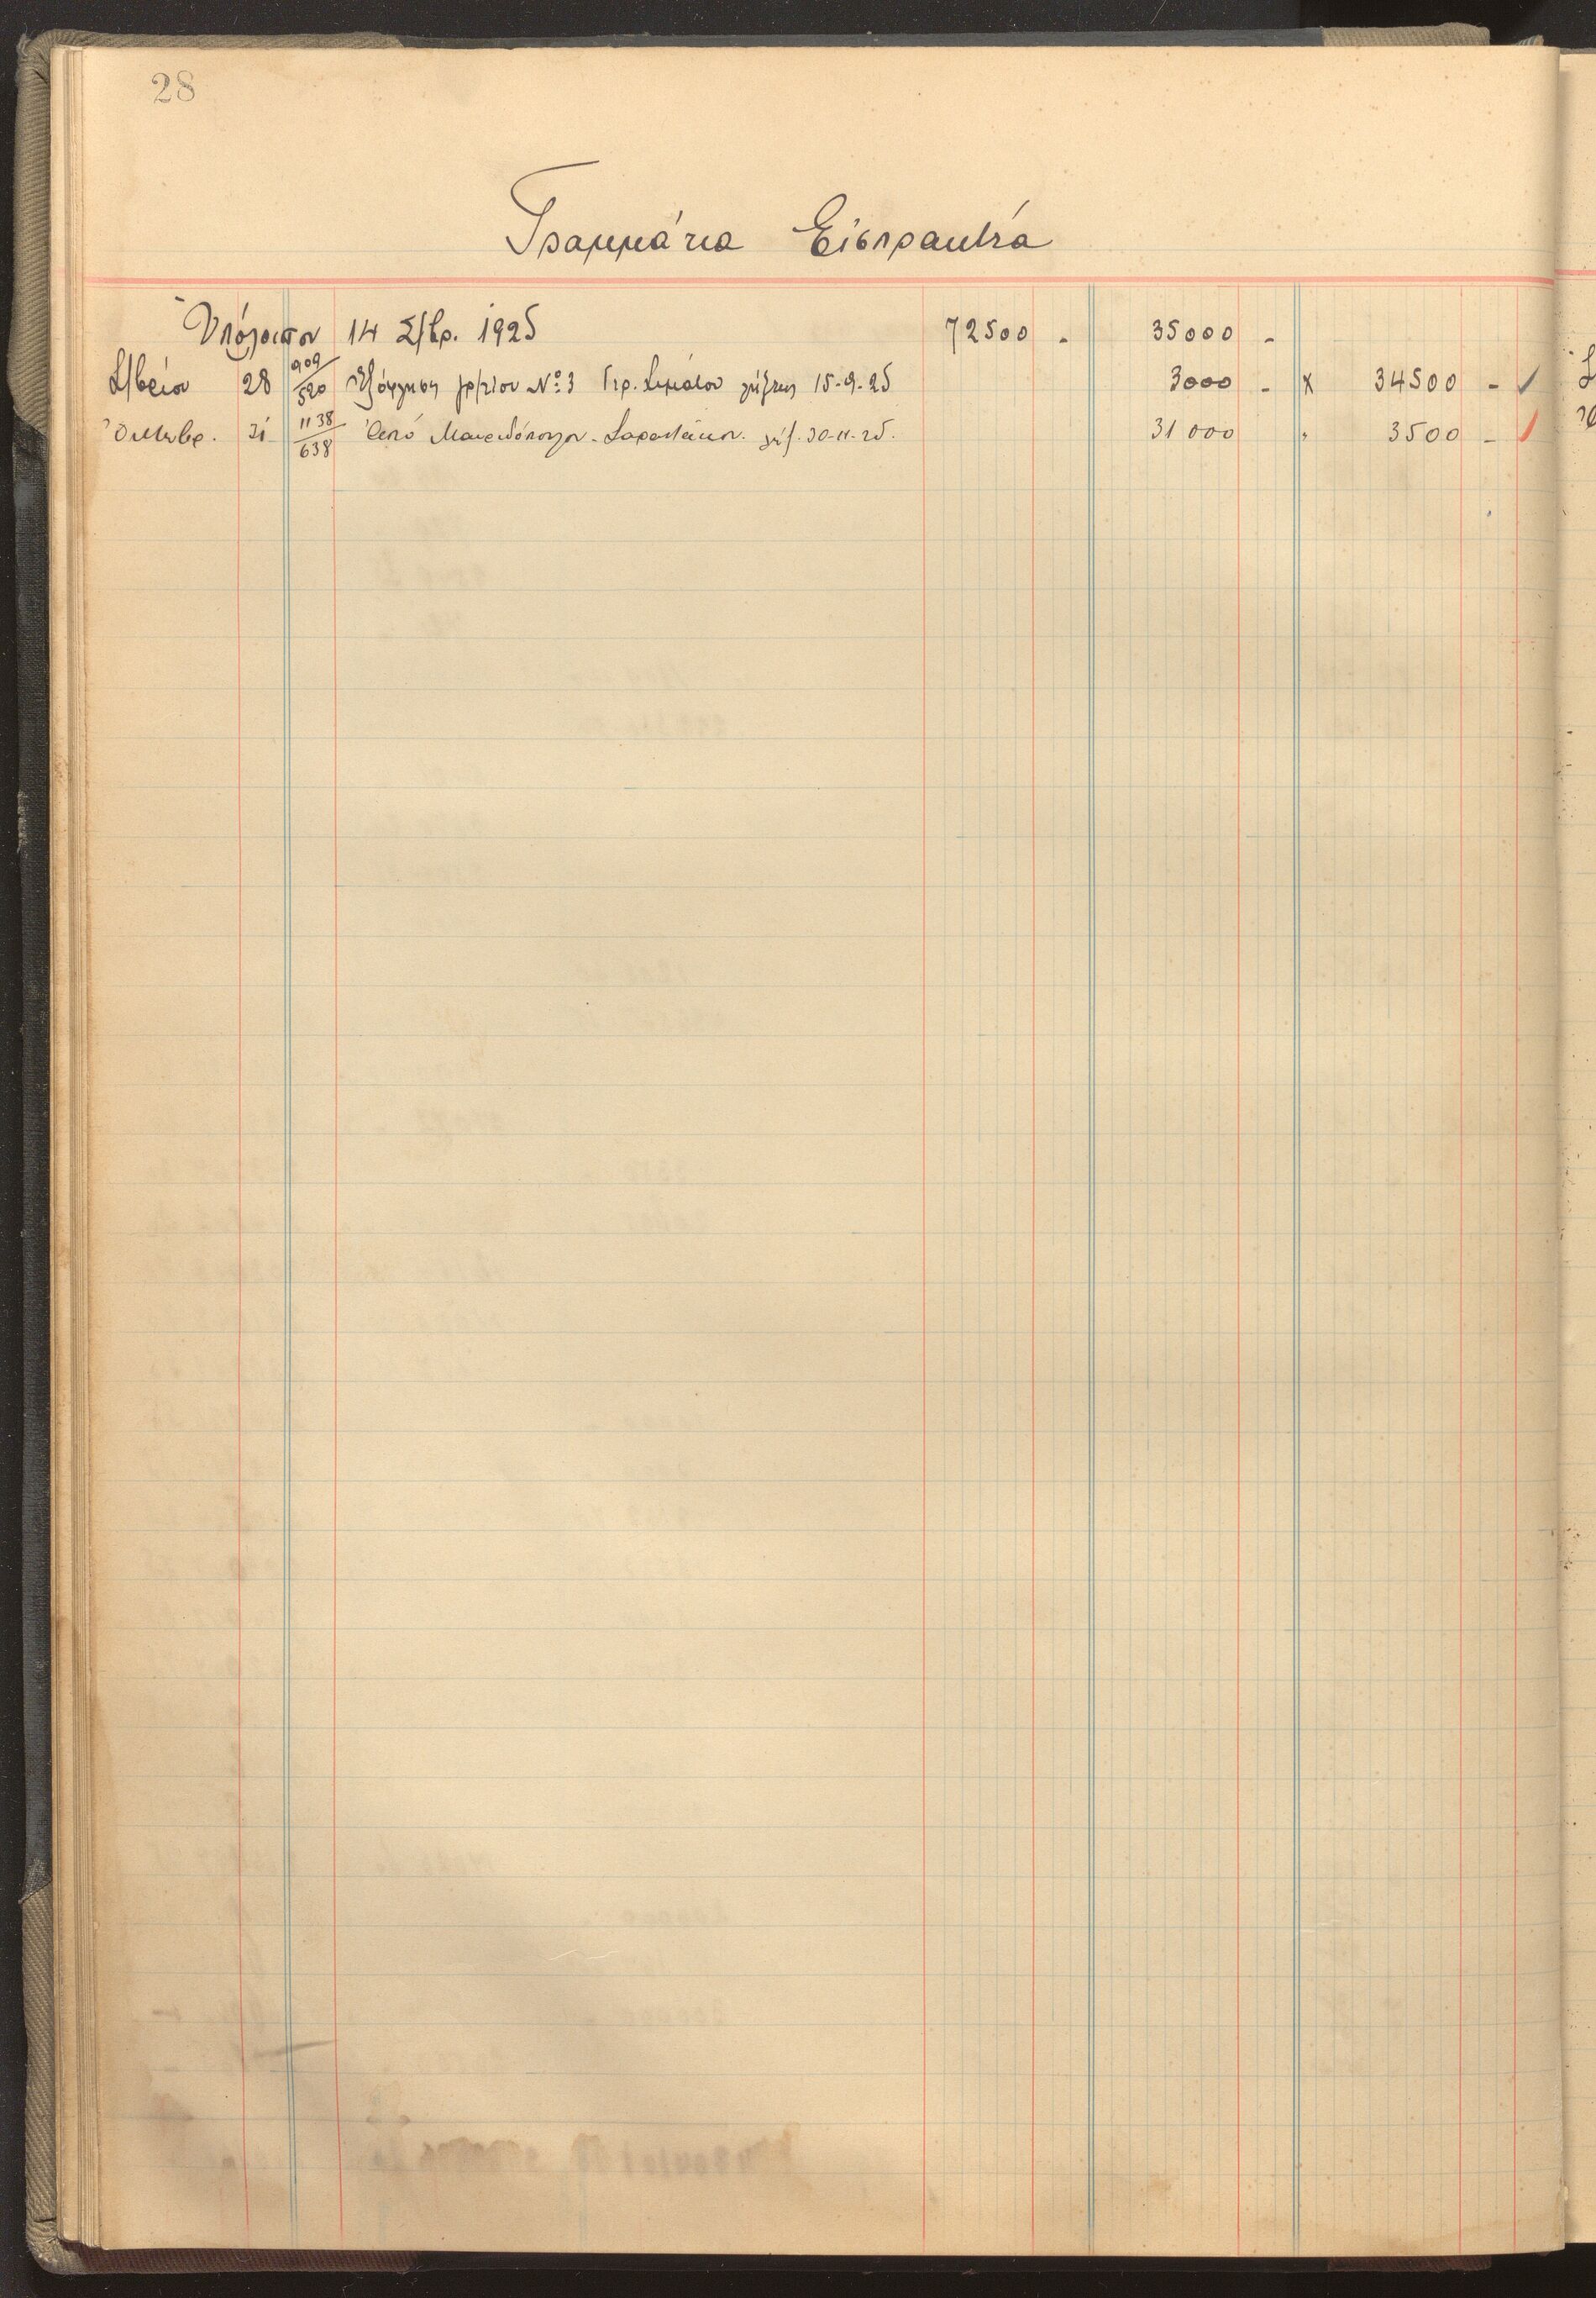 28
Γραμμάτια Εἰσπρακτέα
Ὑπόλοιπον 14 Σ/βρ. 1925 72500 - 35000 -
Σ/βρίου 28 909/520 Ἐξόφλησις γρ/τίου Νο 3 Γρ. Σιμάτου λήξεως 15-9-25 3000 - Χ 34500 -
Ὀκτωβρ. 31 1138/638 Ἀπὸ λήξ. 30-11-25. 31000 " 3500 -